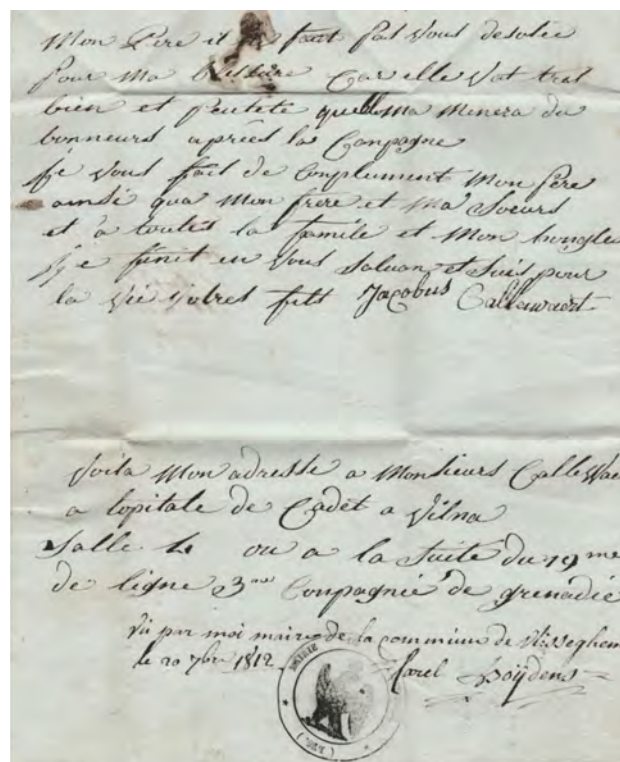 Mon Pere il ne faut pas vous desolee
pour ma blessure car elle vat tres
bien et peutete quelle ma menera du
bonneurs apries la Campagne
je vous fait de Conplument mon pere
ainsi qua mon frere et ma soeurs
et a toutes la famile et mon hongles
je finit en vous saluan et suis pour
la vie votres fils Jacobus Callewaert
voila mon adresse a monsieurs Callewae
a lopitale de Cadet a vilna
Salle 4 ou a la suite du 19 me
de ligne 3me Conpagnie de grenadie
Vu par moi maire de la commune de
le 20 7bre 1812 Carel Boijdens
MAIRIE